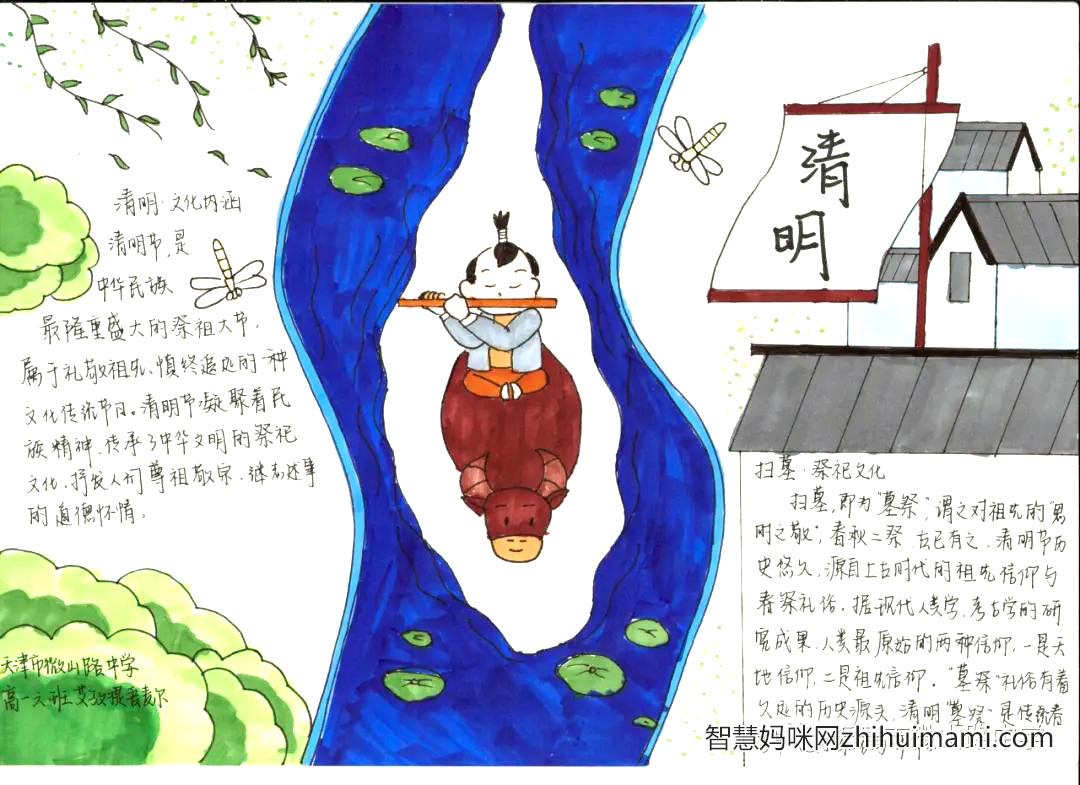 清明·文化内涵
清明节,是
中华民族
最隆重盛大的祭祖大节,
属于礼敬祖先、慎终追远的一种
文化传统节日。清明节凝聚着民
族精神,传承了中华文明的祭祀
文化,抒发人们尊祖敬宗、继志述事
的道德怀情。
天津市微山路中学
高一六班
清
明
扫墓·祭祀文化
扫墓,即为"墓祭",谓之对祖先的"思
时之敬";春秋二祭 古已有之,清明节历
史悠久,源自上古时代的祖先信仰与
春祭礼俗.据现代人类学,考古学的研
究成果,人类最原始的两种信仰,一是天
地信仰,二是祖先信仰."墓祭"礼俗有着
久远的历史源头,清明"墓祭"是传统春
智慧妈咪网zhihuimami.com